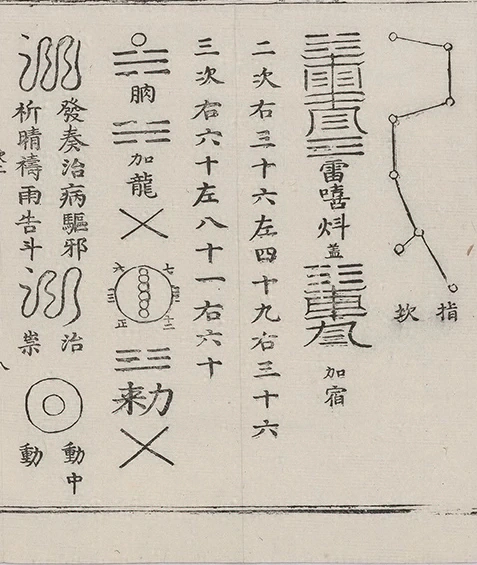 指
坎
雷
蓋
加宿
二次右三十六左四十九右三十六
三次右六十左八十一右六十
加龍
六
七
正
十二
勑
發奏治病驅邪
治
動中
祈晴禱雨告斗
祟
動